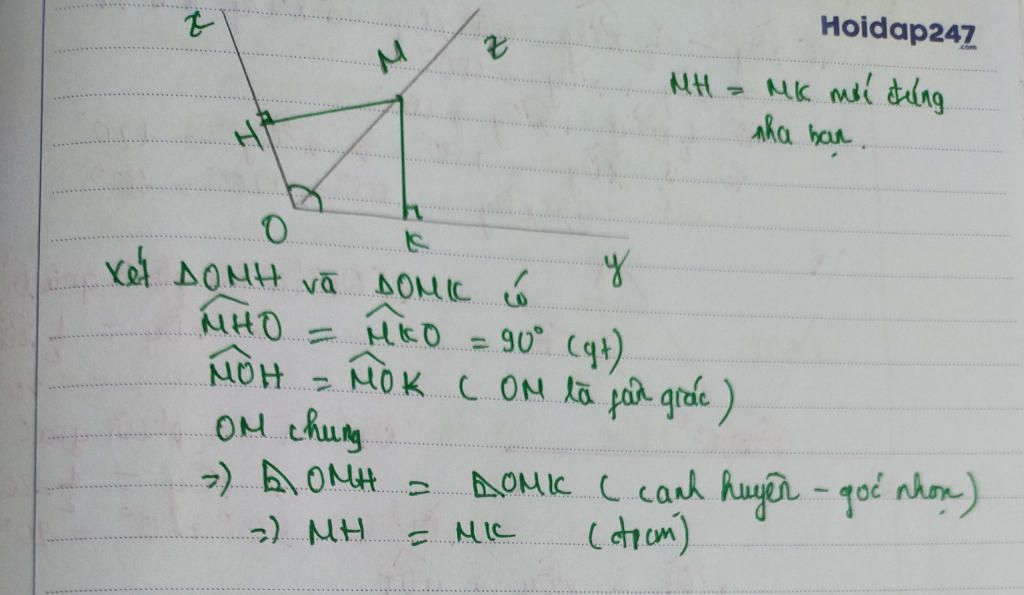 Hoidap247
.com
x
M
z
MH = MK mới đúng
nha bạn.
H
O
K
y
Xét ΔOMH và ΔOMK có
\widehat{MHO} = \widehat{MKO} = 90° (gt)
\widehat{MOH} = \widehat{MOK} ( OM là fân giác )
OM chung
=) ΔOMH = ΔOMK ( cạnh huyền - góc nhọn )
=) MH = MK (đpcm)